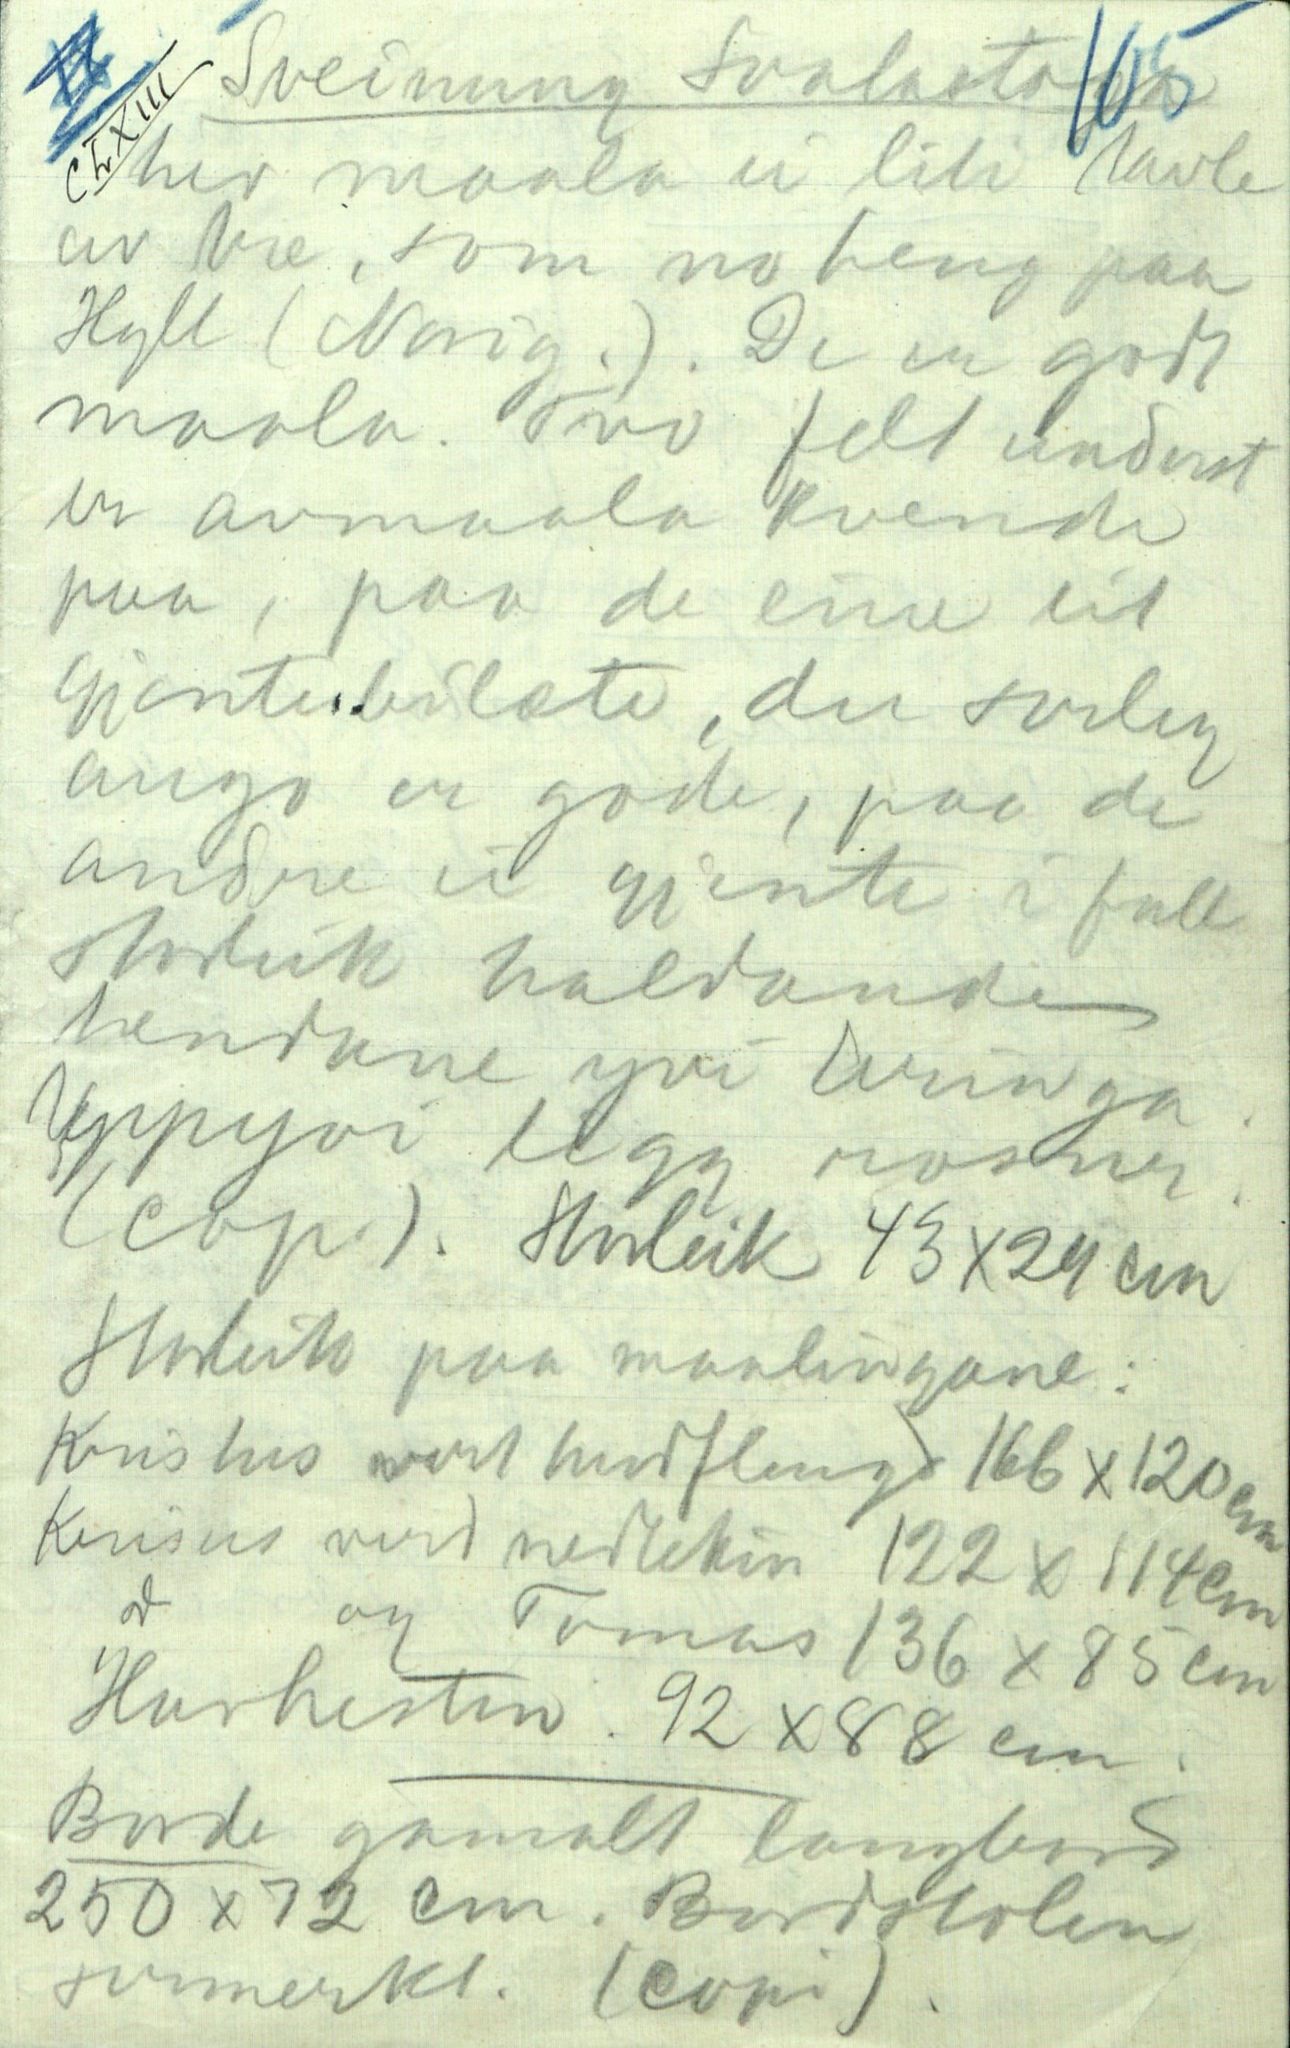 105
CLXIII
Sveinung Svalastoga
her maala ei liti tavle
av tre, som no heng paa
Hyll (Norig.). De er godt
maala. Tvo felt underst
er avmaala kvende
paa, paa de eine eit
gjentebilæte, der serleg
augo er gode, paa de
andre ei gjente i full
storleik haldande
hendane yvi bringa.
Uppyvi ligg rosur.
(Copi). Storleik 43 X 24 cm
Storleik paa maalingane:
Kristus vert hudflengd 166 x 120 cm
Krisus verd nedtekin 122 x 114 cm
d og Tomas 136 x 85 cm
Havhesten. 92 x 88 cm.
Borde gamalt langbord
250 x 72 cm. Bordstolen
sermerkt. (Copi).